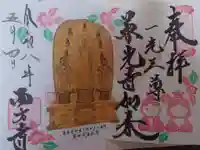 奉拝
一光三尊
善光寺如来
令和八年
五月四日
西方寺